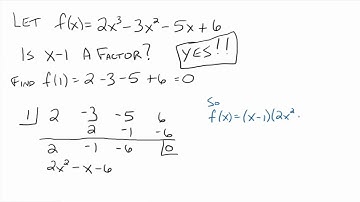 LET f(x)=2x³-3x²-5x+6
IS x-1 A FACTOR? YES!!
FIND f(1)=2-3-5+6=0
1 2 -3 -5 6
2 -1 -6
2 -1 -6 0
2x²-x-6
So
f(x)=(x-1)(2x²-